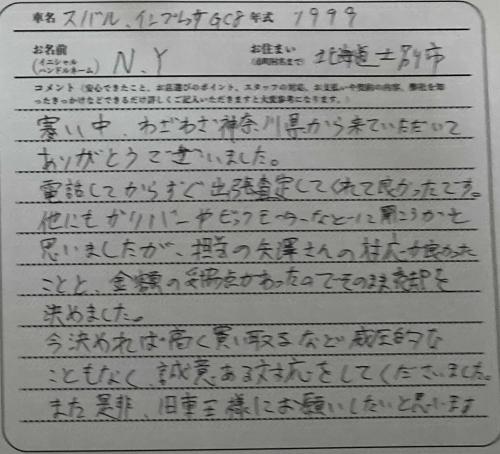 車名 スバル、インプレッサGC8 年式 1999
お名前 (イニシャル ハンドルネーム) N.Y お住まい (市町村名まで) 北海道士別市
コメント (安心できたこと、お店選びのポイント、スタッフの対応、お支払いや契約の内容、弊社を知
ったきっかけなどできるだけ詳しくご記入いただきますと大変参考になります。)
寒い中、わざわざ神奈川県から来ていただいて
ありがとうございました。
電話してからすぐ出張査定してくれて良かったです。
他にもガリバーやビッグモーターなどに聞こうかと
思いましたが、担当の矢澤さんの対応が良かった
ことと、金額の妥協点があったのでそのまま売却を
決めました。
今決めれば高く買い取るなど威圧的な
こともなく、誠意ある対応をしてくださいました。
また是非、旧車王様にお願いしたいと思います